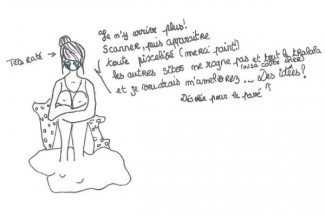 Je n'y arrive plus!
Scanner, puis apparaître
Très raté
toute pixelisé (merci paint)
les autres sites me rogne pas et tout le tralala
ou sa coute cher
et je voudrais m'améliorez ... Des idées?
Désolée pour le pavé